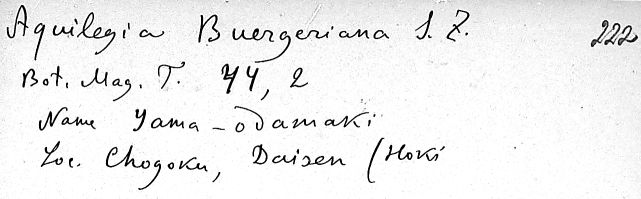 Aquilegia Buergeriana S. Z. 222
Bot. Mag. T. 44, 2
Name Yama-odamaki
Loc. Chogoku, Daisen (Hoki